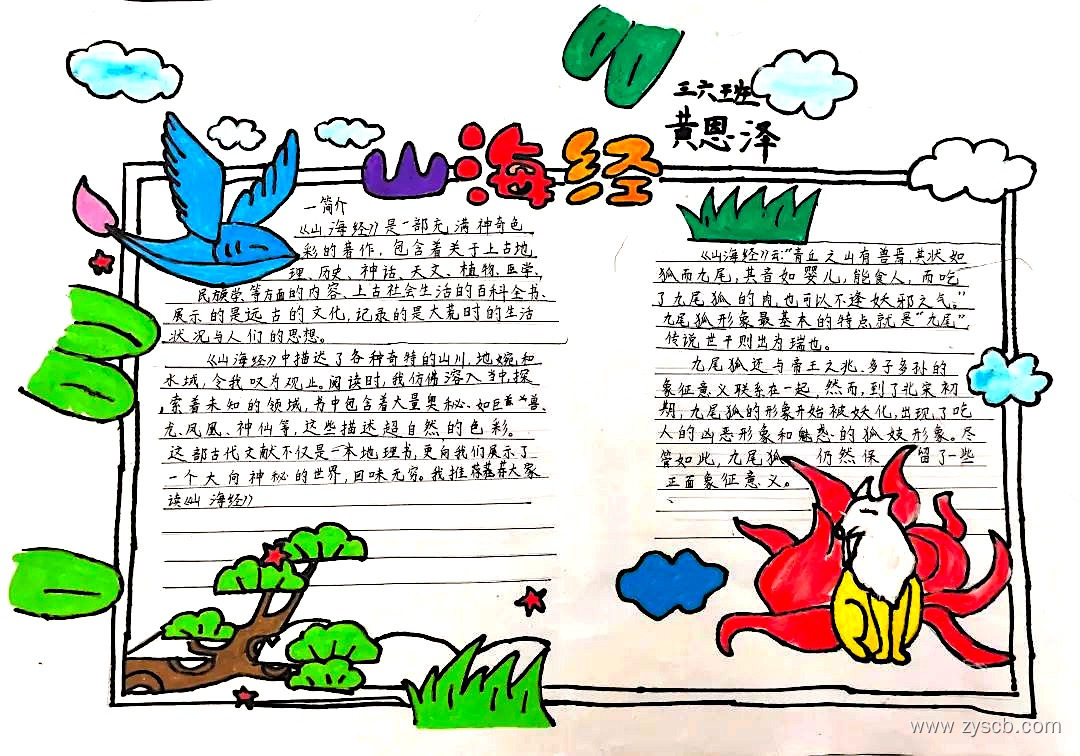 三六班
黄恩泽
山海经
一简介
《山海经》是一部充满神奇色
彩的著作，包含着关于上古地
理、历史、神话、天文、植物、医学、
民族学等方面的内容、上古社会生活的百科全书、
展示的是远古的文化，记录的是大荒时的生活
状况与人们的思想。
《山海经》中描述了各种奇特的山川、地婉和
水域，令我叹为观止。阅读时，我仿佛溶入当中，探
索着未知的领域，书中包含着大量奥秘、如巨兽、
龙、凤凰、神仙等，这些描述超自然的色彩。
这部古代文献不仅是一本地理书，更向我们展示了
一个大向神秘的世界，回味无穷。我推荐大家
读《山海经》
《山海经》云：“青丘之山有兽焉，其状如
狐而九尾，其音如婴儿，能食人，而吃
了九尾狐的肉，也可以不逢妖邪之气。”
九尾狐形象最基本的特点就是“九尾”，
传说世平则出为瑞也。
九尾狐还与帝王之兆、多子多孙的
象征意义联系在一起，然而，到了北宋初
期，九尾狐的形象开始被妖化，出现了吃
人的凶恶形象和魅惑的狐妓形象。尽
管如此，九尾狐仍然保留了一些
正面象征意义。
www.zyscb.com